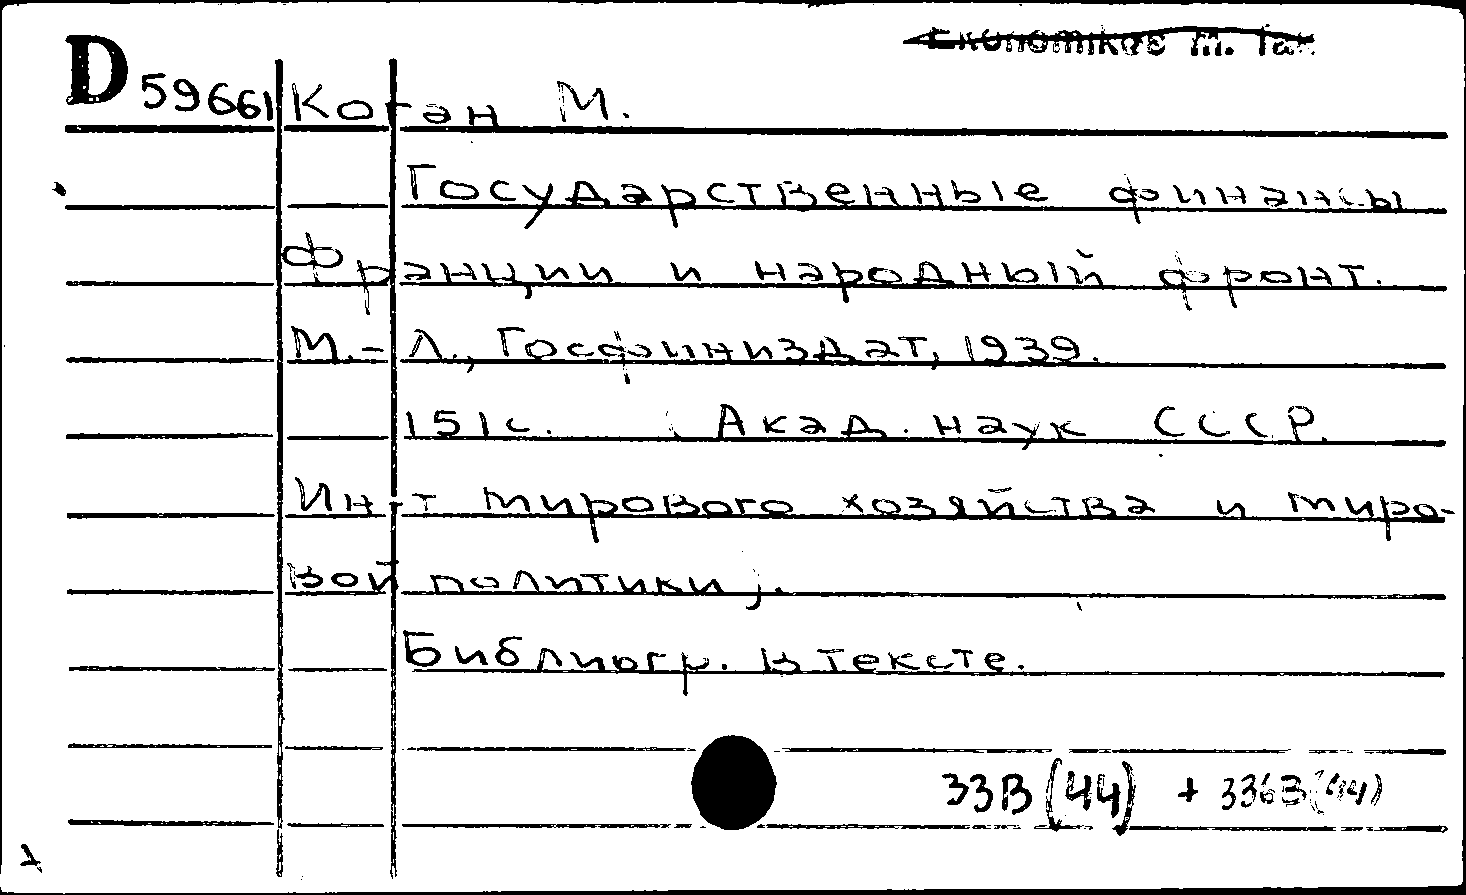 Ekonomikos m. fak
D 59661 Коган М.
Государственные финансы
Франции и народный фронт.
М.-Л., Госфиниздат, 1939.
151 с. (Акад. наук СССР.
Ин-т мирового хозяйства и миро-
вой политики).
Библиогр. в тексте.
33В(44) + 336В(44)